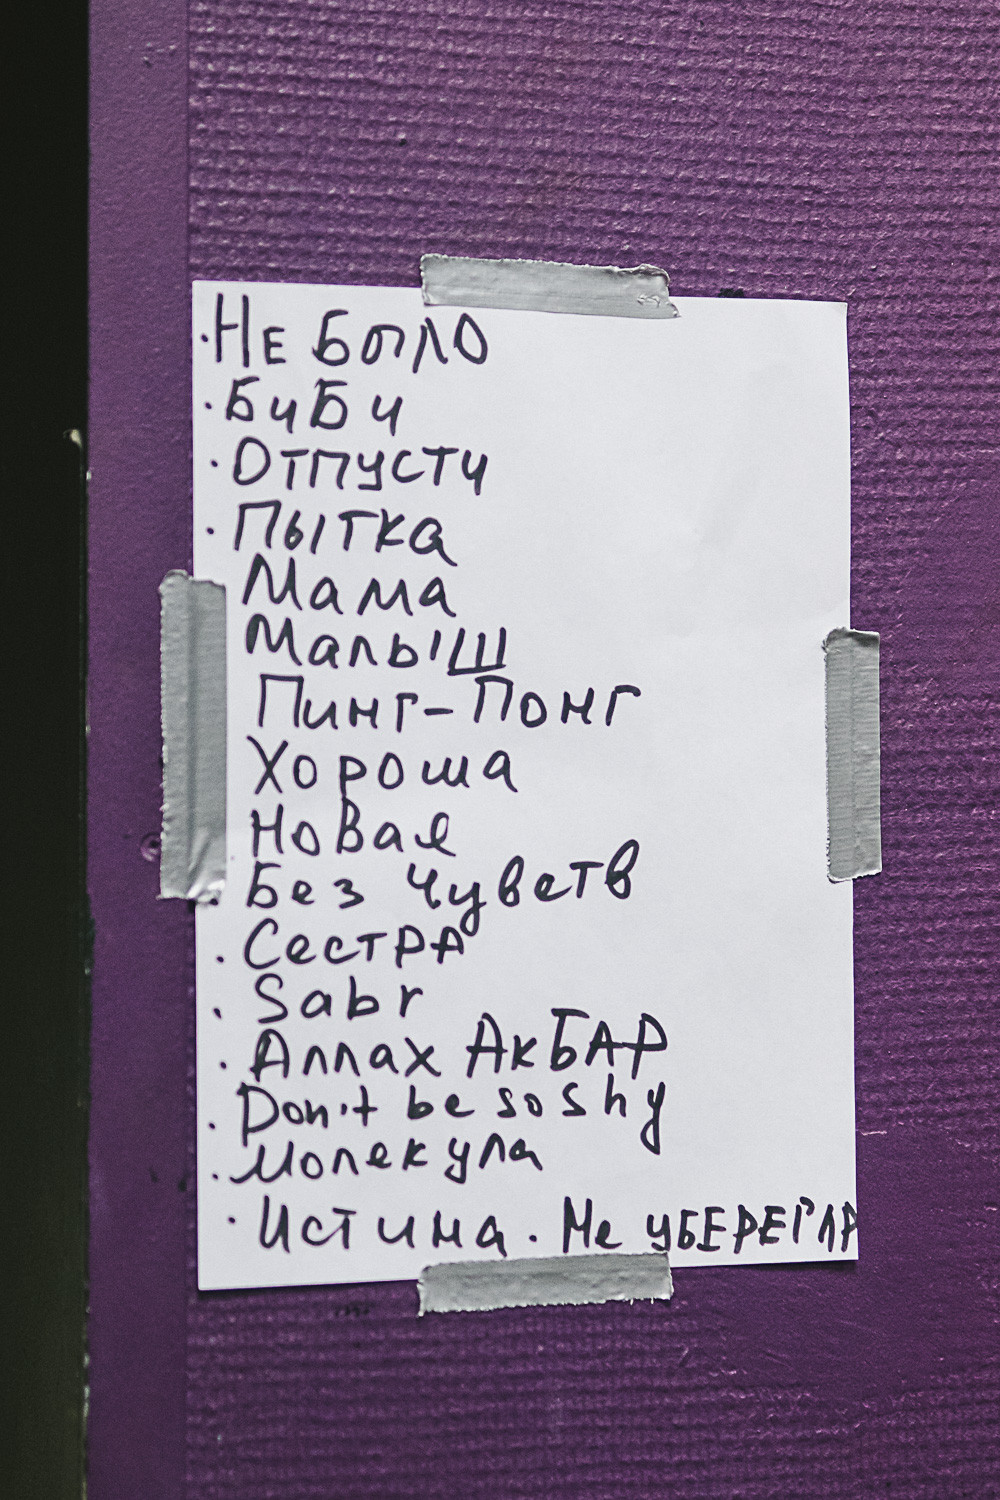 ·Не было
·БиБи
·Отпусти
·Пытка
Мама
Малыш
Пинг-Понг
Хороша
Новая
·Без Чувств
·Сестра
·Sabr
·Аллах АкБАР
·Don't be so shy
·Молекула
·Истина·Не